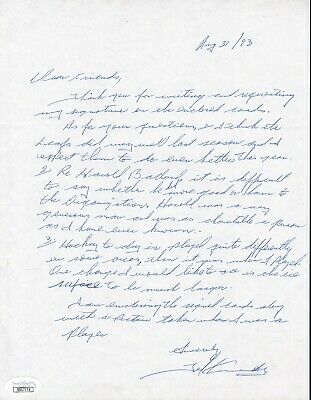 Aug 21/93
Dear Friends,
Thank you for writing and requesting
my signature on the enclosed cards.
As for your questions, I think the
Leafs did very well last season and I
expect them to do even better this year.
2 Re Harold Ballard, it is difficult
to say whether he did more good or harm to
the Organization. Harold was a very
generous man and was as charitable a person
as I have ever known.
3 Hockey to day is played quite differently
in some ways, than it was when I played.
One change I would like to see is the ice
surface to be much larger.
I am enclosing the signed cards along
with a picture taken when I was a
Player
Sincerely
JSA